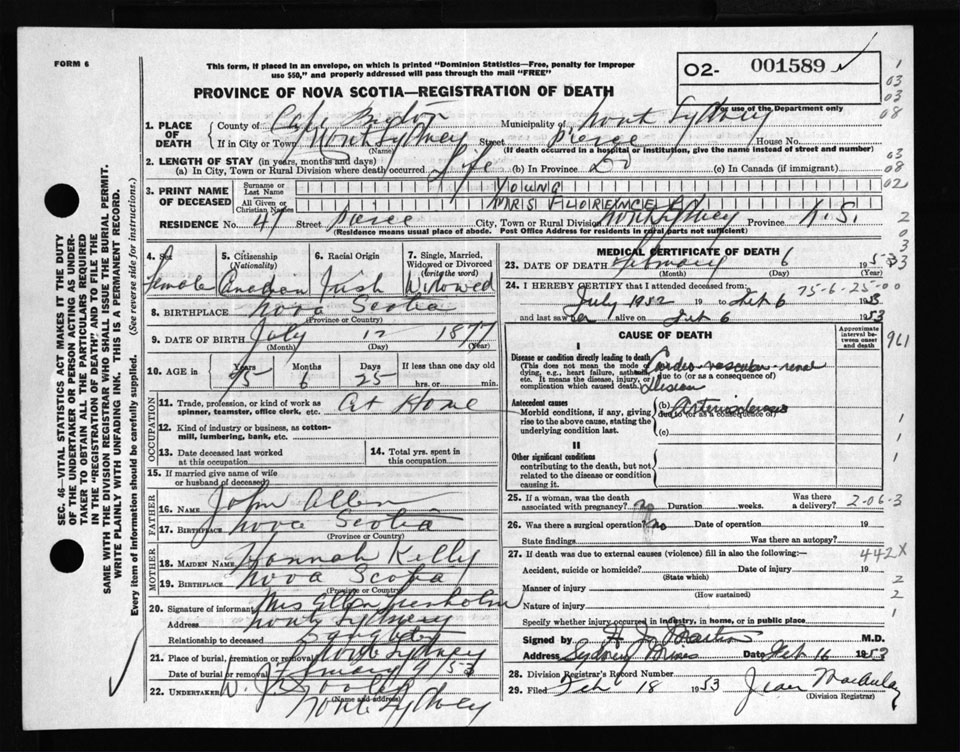 FORM 6
This form, if placed in an envelope, on which is printed "Dominion Statistics—Free, penalty for improper
use $50," and properly addressed will pass through the mail "FREE"
O2- 001589
For use of the Department only
PROVINCE OF NOVA SCOTIA—REGISTRATION OF DEATH
1. PLACE OF DEATH
County of Cape Breton Municipality of North Sydney
If in City or Town North Sydney Street Pierce House No.
(Name) (If death occurred in a hospital or institution, give the name instead of street and number)
2. LENGTH OF STAY (in years, months and days)
(a) In City, Town or Rural Division where death occurred Life (b) In Province Do (c) In Canada (if immigrant)
3. PRINT NAME OF DECEASED
Surname or Last Name YOUNG
All Given or Christian Names MRS FLORENCE
RESIDENCE No. 47 Street Pierce City, Town or Rural Division North Sydney Province N.S.
(Residence means usual place of abode. Post Office Address for residents in rural parts not sufficient)
4. Sex Female
5. Citizenship (Nationality) Canadian
6. Racial Origin Irish
7. Single, Married, Widowed or Divorced (write the word) Widowed
8. BIRTHPLACE Nova Scotia
(Province or Country)
9. DATE OF BIRTH July 12 1877
(Month) (Day) (Year)
10. AGE in Years 75 Months 6 Days 25 If less than one day old
hrs. or min.
OCCUPATION
11. Trade, profession, or kind of work as spinner, teamster, office clerk, etc. At Home
12. Kind of industry or business, as cotton-mill, lumbering, bank, etc.
13. Date deceased last worked at this occupation
14. Total yrs. spent in this occupation
15. If married give name of wife or husband of deceased
FATHER
16. NAME John Allen
17. BIRTHPLACE Nova Scotia
(Province or Country)
MOTHER
18. MAIDEN NAME Hannah Kelly
19. BIRTHPLACE Nova Scotia
(Province or Country)
20. Signature of informant Mrs Ellen
Address North Sydney
Relationship to deceased Daughter
21. Place of burial, cremation or removal North Sydney
Date of burial or removal February 9 1953
22. UNDERTAKER W. J.
(Name and address)
North Sydney
MEDICAL CERTIFICATE OF DEATH
23. DATE OF DEATH February 6 1953
(Month) (Day) (Year)
24. I HEREBY CERTIFY that I attended deceased from: 75-6-25-00
July 1952 19 to Feb 6 1953
and last saw her alive on Feb 6 1953
CAUSE OF DEATH
Approximate interval between onset and death
I
Disease or condition directly leading to death
(This does not mean the mode of dying, e.g., heart failure, asthenia, etc. It means the disease, injury, or complication which caused death.)
Cardio-vascular-renal
due to (or as a consequence of)
disease
Antecedent causes
Morbid conditions, if any, giving rise to the above cause, stating the underlying condition last.
(b) Arteriosclerosis
due to (or as a consequence of)
(c)
II
Other significant conditions
contributing to the death, but not related to the disease or condition causing it
25. If a woman, was the death associated with pregnancy? no Duration weeks. Was there a delivery? 2-06-3
26. Was there a surgical operation? no Date of operation 19
State findings Was there an autopsy?
27. If death was due to external causes (violence) fill in also the following:— 442X
Accident, suicide or homicide? Date of injury 19
(State which)
Manner of injury
(How sustained)
Nature of injury
Specify whether injury occurred in industry, in home, or in public place
Signed by M.D.
Address Sydney Mines Date Feb 16 1953
28. Division Registrar's Record Number
29. Filed Feb 18 1953 Jean MacAulay
(Division Registrar)
SEC. 46—VITAL STATISTICS ACT MAKES IT THE DUTY
OF THE UNDERTAKER OR PERSON ACTING AS UNDER-
TAKER TO OBTAIN ALL THE PARTICULARS REQUIRED
IN THE "REGISTRATION OF DEATH" AND TO FILE THE
SAME WITH THE DIVISION REGISTRAR WHO SHALL ISSUE THE BURIAL PERMIT.
WRITE PLAINLY WITH UNFADING INK. THIS IS A PERMANENT RECORD.
Every item of information should be carefully supplied. (See reverse side for instructions.)
1
03
03
08
03
08
02
2
0
3
3
961
1
1
1
2
2
1